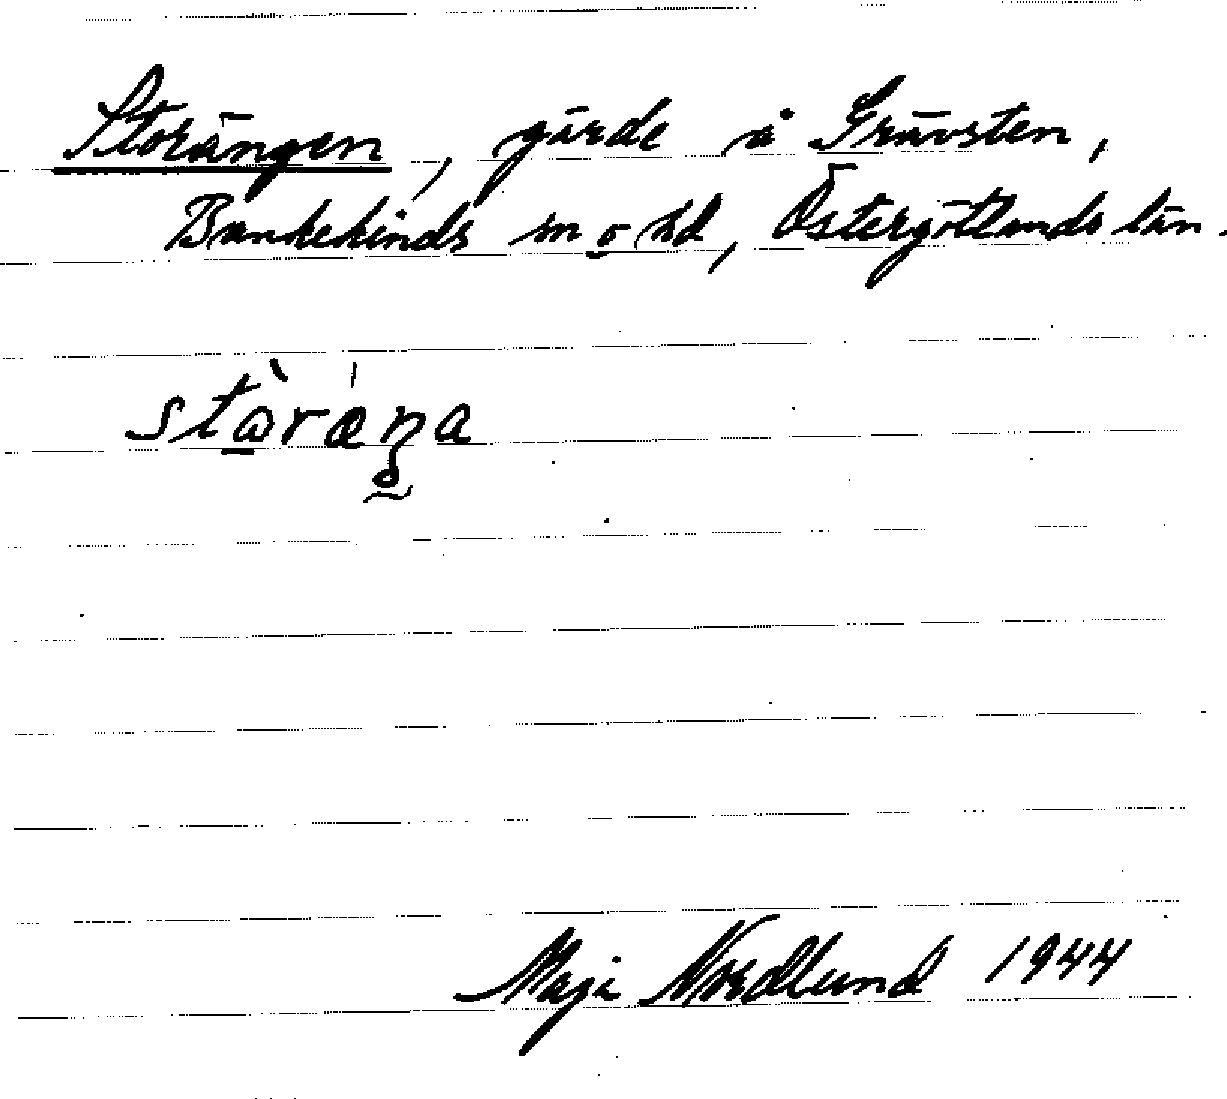 Storängen, gärde å Grävsten,
Bankekinds sn o hd, Östergötlands län.
Maja Nordlund 1944